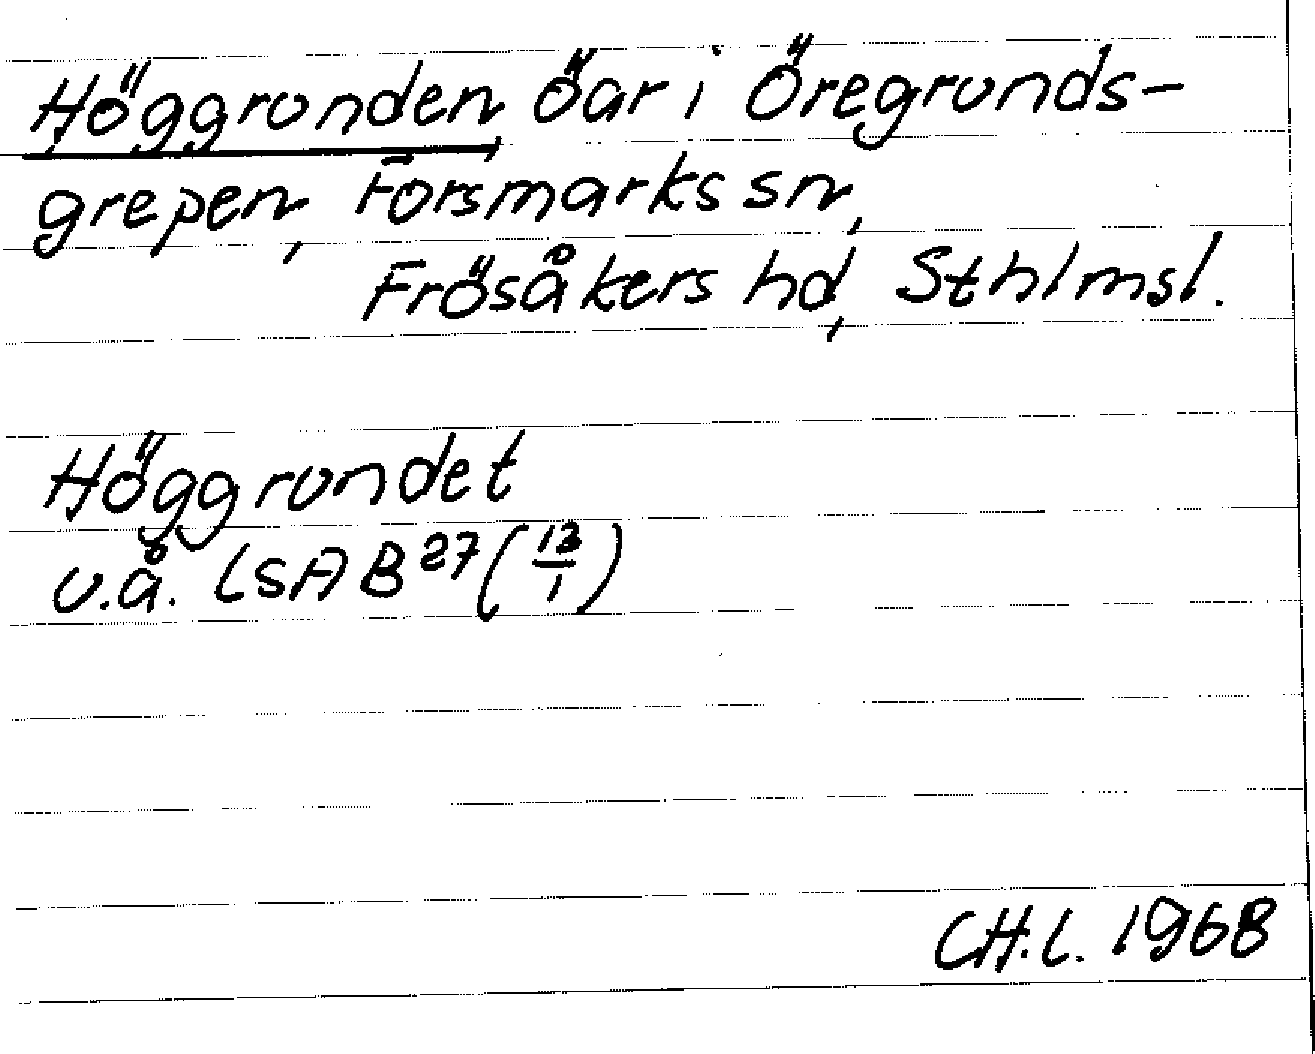 Höggrunden, öar i Öregrunds-
grepen, Forsmarks sn,
Frösåkers hd, Sthlmsl.
Höggrundet
u.å. LSA B 27 (13/1)
CH.L. 1968